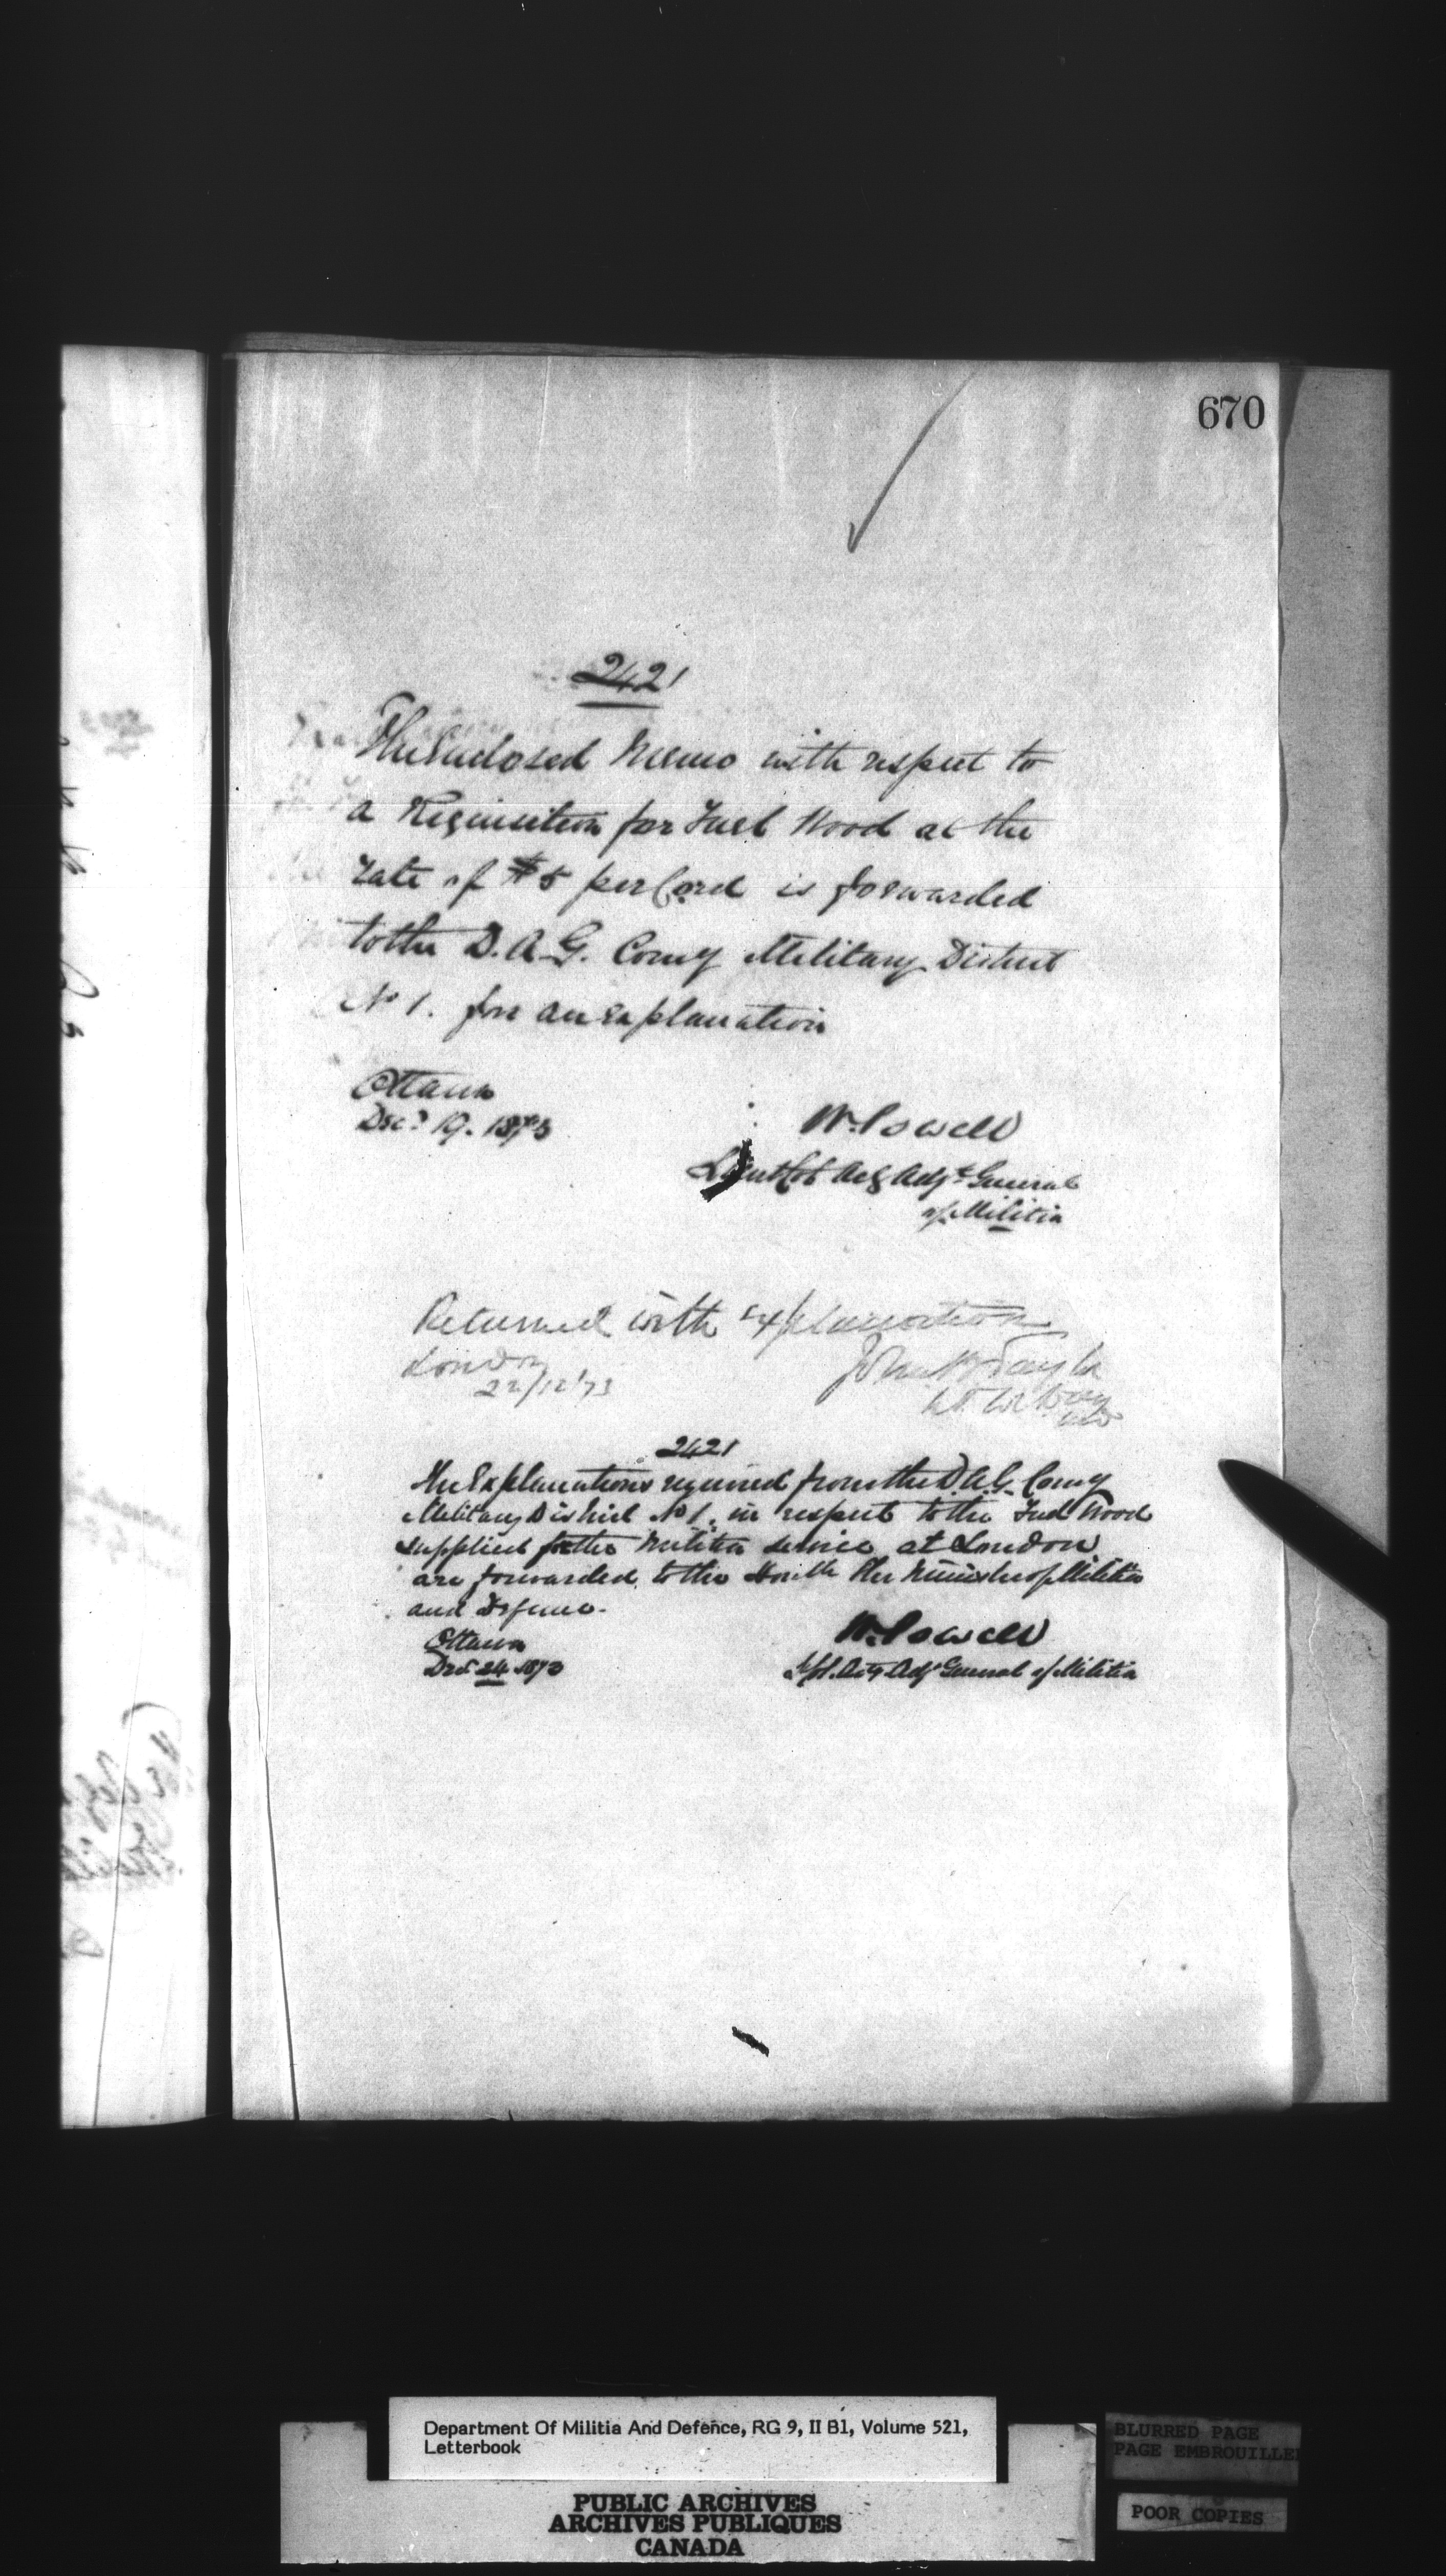 670
2421
The Enclosed Memo with respect to
a Requisition for Fuel Wood at the
rate of $5 per Cord is forwarded
to the D.A.G. Comg Military District
No 1. for an Explanation
Ottawa
Decr 19. 1873
W. Powell
Lieut Col Actg Adjt General
of Militia
Returned with explanation
London
22/12/73
John B Taylor
Lt Col
2421
The Explanations required from the D.A.G. Comg
Military District No 1. in respect to the Fuel Wood
supplied for the Militia service at London
are forwarded to the Honble The Minister of Militia
and Defence.
Ottawa
Decr 24 1873
W. Powell
Actg Adjt General of Militia
Department Of Militia And Defence, RG 9, II B1, Volume 521,
Letterbook
PUBLIC ARCHIVES
ARCHIVES PUBLIQUES
CANADA
BLURRED PAGE
PAGE EMBROUILLEE
POOR COPIES